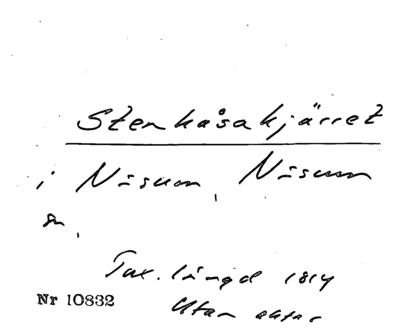 Stenkåsakjärret
i Nisum, Nisum
sn,
Tax. längd 1814
Nr 10832 Utan aktnr